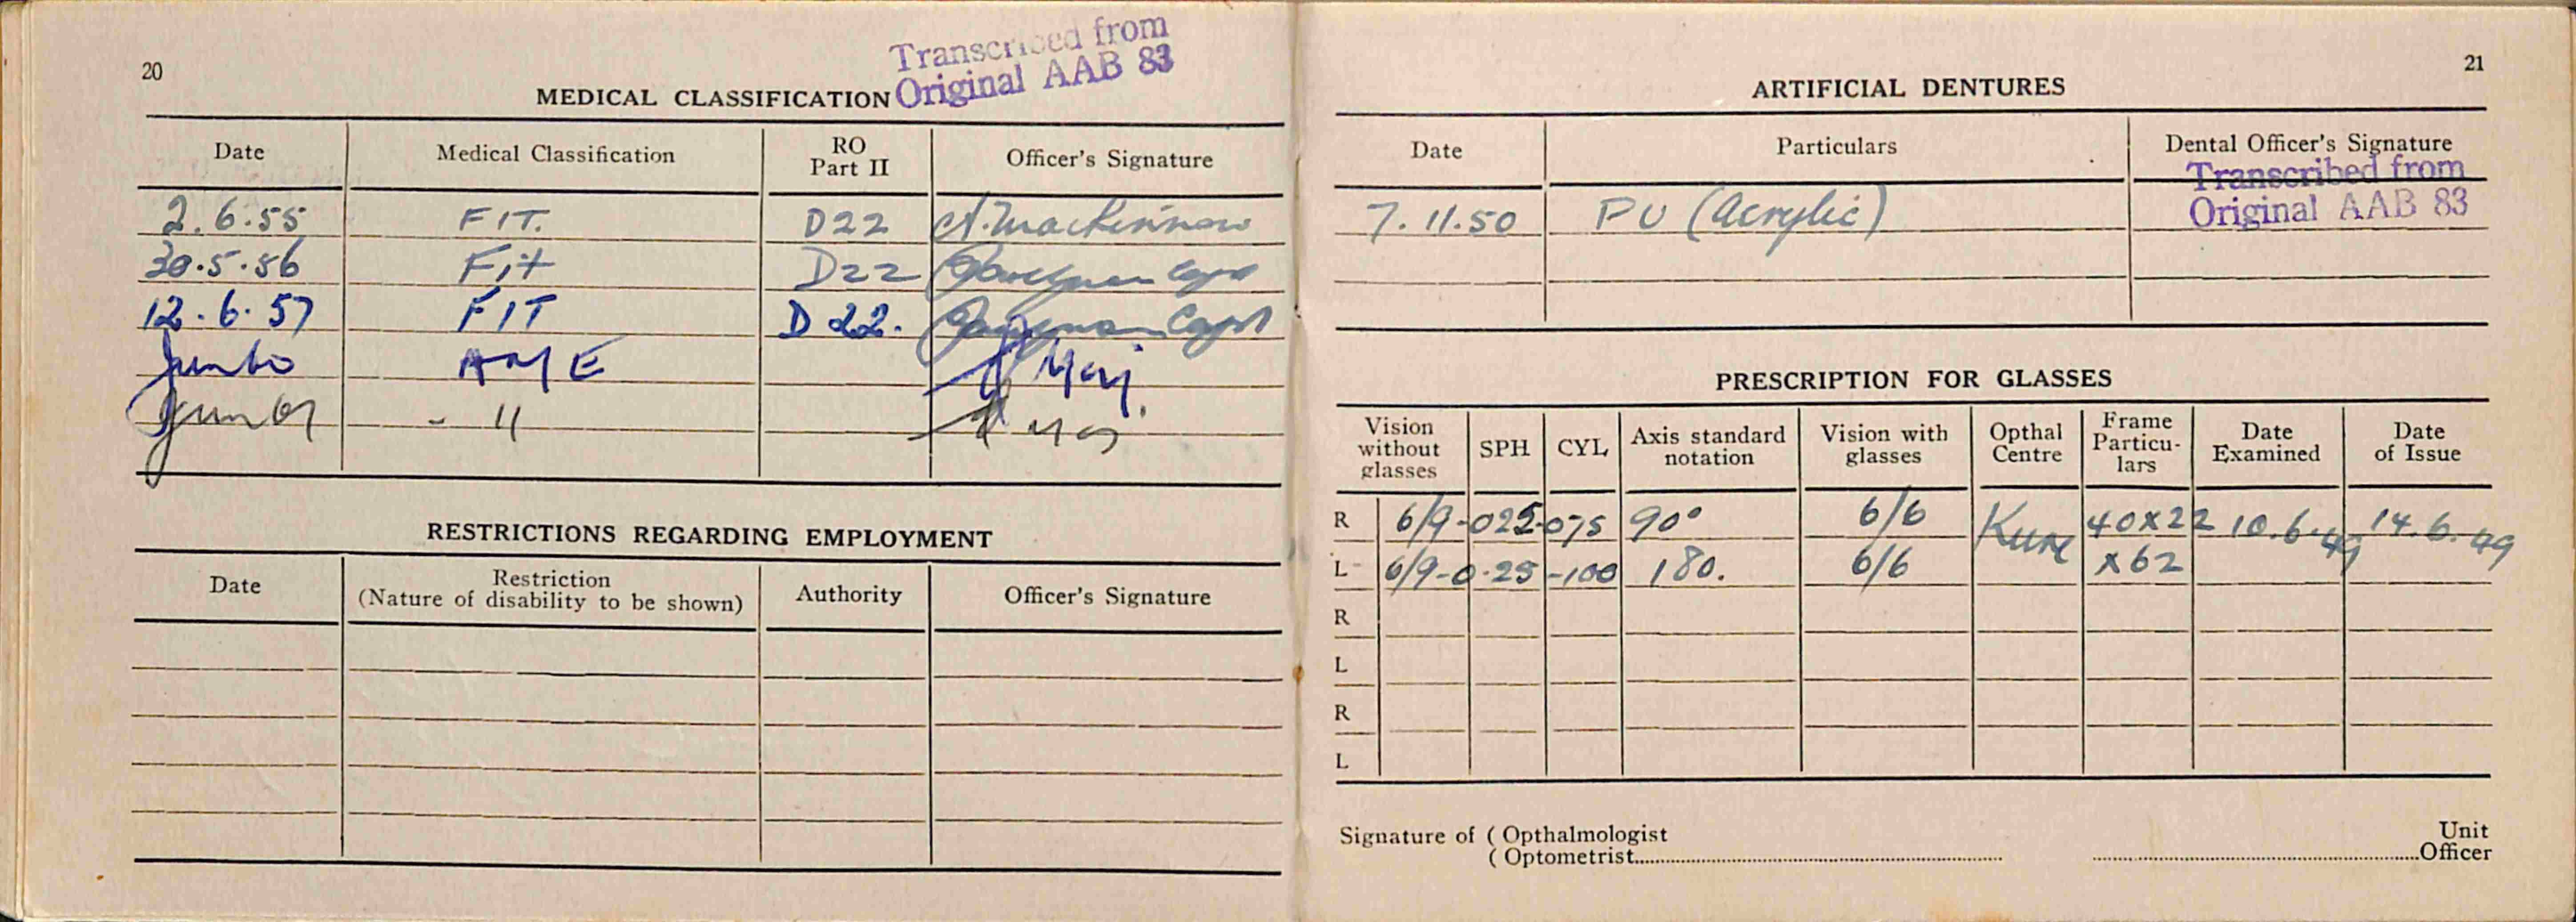 20
Transcribed from
Original AAB 83
MEDICAL CLASSIFICATION
Date Medical Classification RO Part II Officer's Signature
2.6.55 FIT. D22 A. MacKinnon
30.5.56 Fit D22 Capt
12.6.57 FIT D 22. Capt
Jun 60 AME Maj
Jun 61 - " Maj
RESTRICTIONS REGARDING EMPLOYMENT
Date Restriction (Nature of disability to be shown) Authority Officer's Signature
21
ARTIFICIAL DENTURES
Date Particulars Dental Officer's Signature
Transcribed from
Original AAB 83
7.11.50 PU (Acrylic)
PRESCRIPTION FOR GLASSES
Vision without glasses SPH CYL Axis standard notation Vision with glasses Opthal Centre Frame Particu- lars Date Examined Date of Issue
R 6/9 -025 -075 90° 6/6 Kure 40x22 10.6.49 14.6.49
L 6/9 -0.25 -100 180. 6/6 x62
R
L
R
L
Signature of ( Opthalmologist Unit
( Optometrist Officer